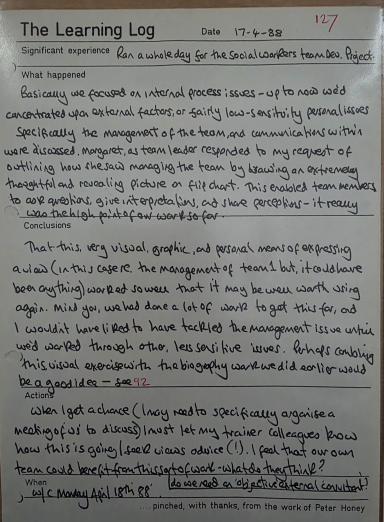 127
The Learning Log Date 17-4-88
Significant experience Ran a whole day for the Social Workers Team Dev. Project.
What happened
Basically we focused on internal process issues - up to now we'd
concentrated upon external factors, or fairly low-sensitivity personal issues
Specifically the management of the team, and communications within
were discussed. Margaret, as team leader responded to my request of
outlining how she saw managing the team by drawing an extremely
thoughtful and revealing picture on flip chart. This enabled team members
to ask questions, give interpretations, and share perceptions - it really
was the high point of our work so far.
Conclusions
That this, very visual, graphic, and personal means of expressing
a view (in this case re. the management of team but, it could have
been anything) worked so well that it may be well worth using
again. Mind you, we had done a lot of work to get this far, and
I wouldn't have liked to have tackled the management issue until
we'd worked through other, less sensitive issues. Perhaps combining
this visual exercise with the biography work we did earlier would
be a good idea - see 92
Actions
When I get a chance (I may need to specifically organise a
meeting of us to discuss) I must let my trainer colleagues know
how this is going / seek views advice (!). I feel that our own
team could benefit from this sort of work - what do they think?
do we need an 'objective' external consultant?
When
w/c Monday April 18th 88'
....pinched, with thanks, from the work of Peter Honey